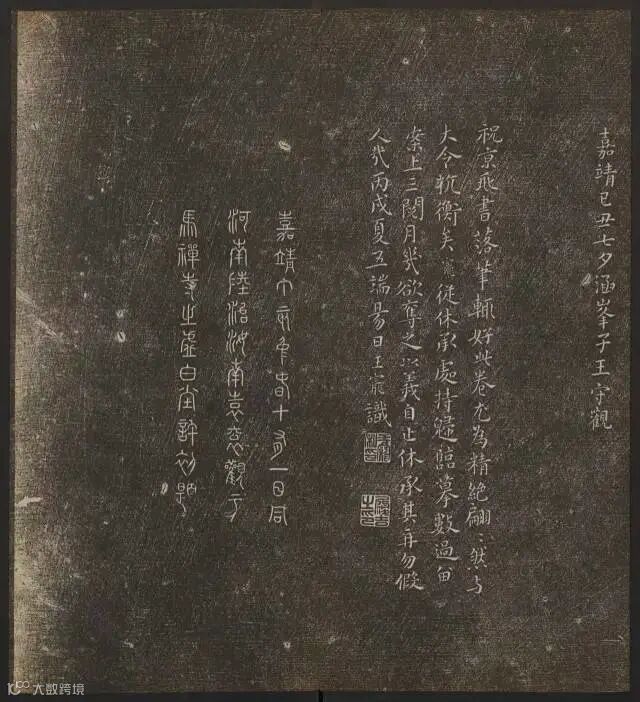 嘉靖己丑七夕涵峯子王守觀
祝京兆書落筆輒好此卷尤為精絕翩〻然与
大令抗衡矣寵從休承處持歸臨摹數過留
案上三閱月幾欲奪之以義自止休承其勿假
人丙戌夏五端昜日王寵識
嘉靖丁亥年春十一日同
河南陸治汝南袁袠觀于
馬禪寺之虛白堂許初題
大数跨境